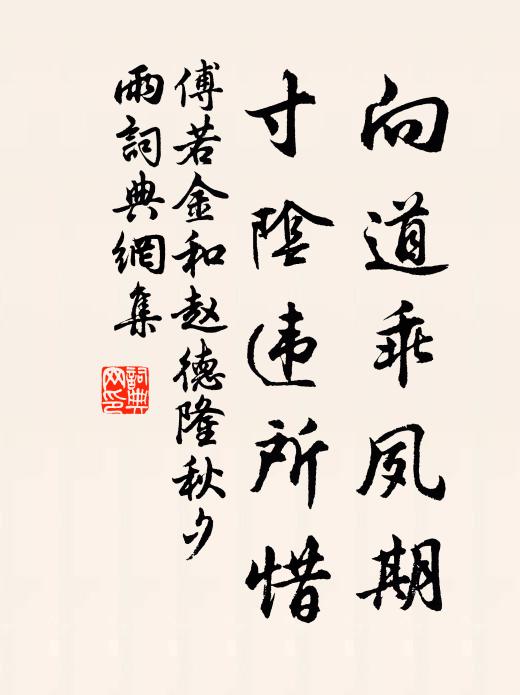 向道乖夙期
寸陰违所惜
傅若金和赵德隆秋夕
雨詞典網集
詞典網印